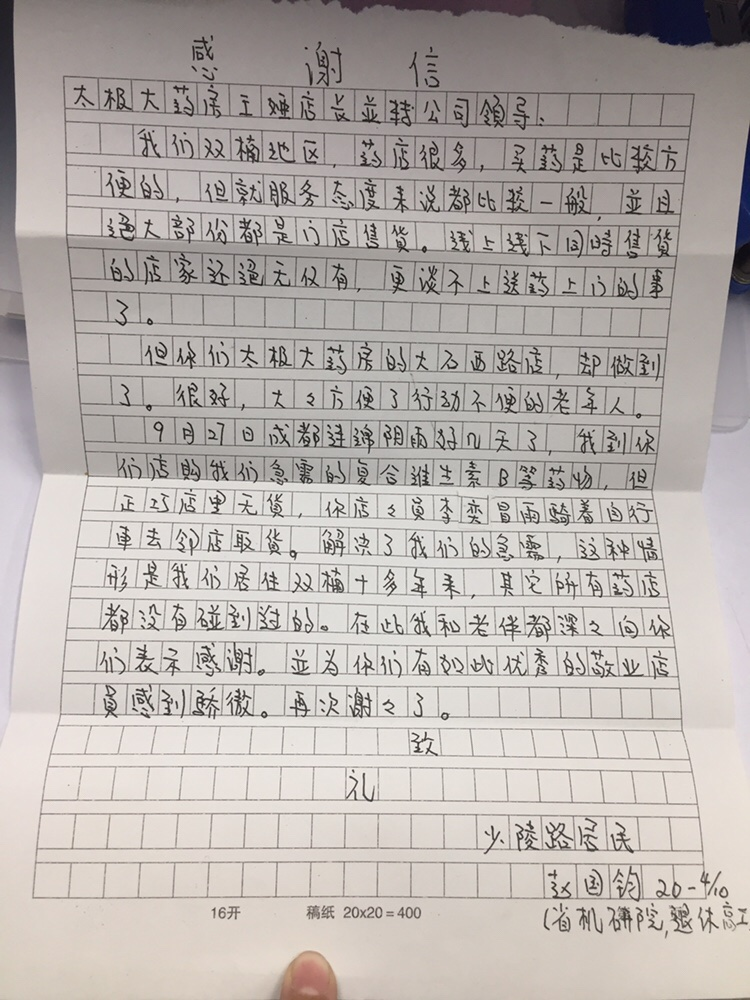 感谢信
太极大药房王娅店长並转公司領导:
我们双楠地区，药店很多，买药是比较方
便的，但就服务态度来说都比较一般，並且
绝大部份都是门店售货。线上线下同時售貨
的店家还绝无仅有，更谈不上送药上门的事
了。
但你们太极大药房的大石西路店，却做到
了。很好，大々方便了行动不便的老年人。
9月27日成都连绵阴雨好几天了，我到你
们店购我们急需的复合维生素B等药物，但
正巧店里无貨，你店々員李奕冒雨騎着自行
車去邻店取貨。解决了我们的急需，这种情
形是我们居住双楠十多年来，其它所有药店
都没有碰到过的。在此我和老伴都深々向你
们表示感谢。並为你们有如此优秀的敬业店
員感到驕傲。再次谢々了。
致
礼
少陵路居民
赵国钧 20-4/10
(省机研院,退休高工
16开 稿纸 20x20=400